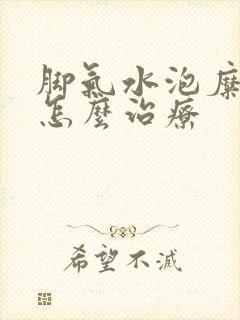 脚氣水泡糜
怎麼治療
希望不滅